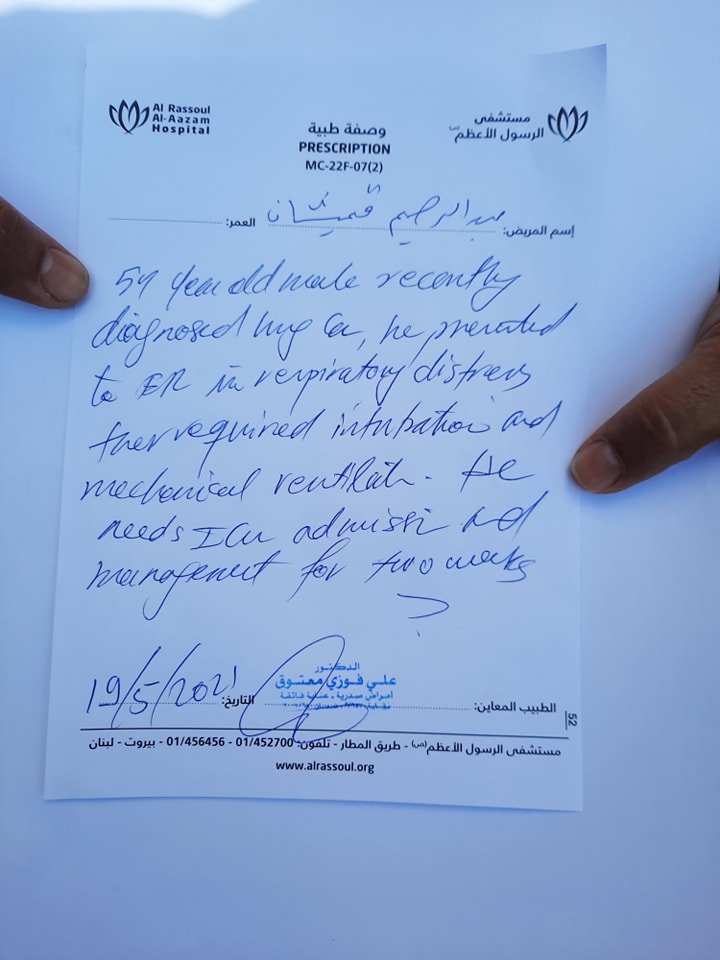 Al Rassoul
Al-Aazam
Hospital
وصفة طبية
PRESCRIPTION
MC-22F-07(2)
مستشفى
الرسول الأعظم (ص)
إسم المريض: عبد الرحيم العمر:
54 year old male recently
diagnosed lung Ca, he presented
to ER in respiratory distress
then required intubation and
mechanical ventilati. He
needs ICU admissi and
management for two weeks
?
الدكتور
علي فوزي معتوق
أمراض صدرية - عناية فائقة
الطبيب المعاين: التاريخ: 19/5/2021
52
مستشفى الرسول الأعظم (ص) - طريق المطار - تلفون: 01/452700 - 01/456456 - بيروت - لبنان
www.alrassoul.org